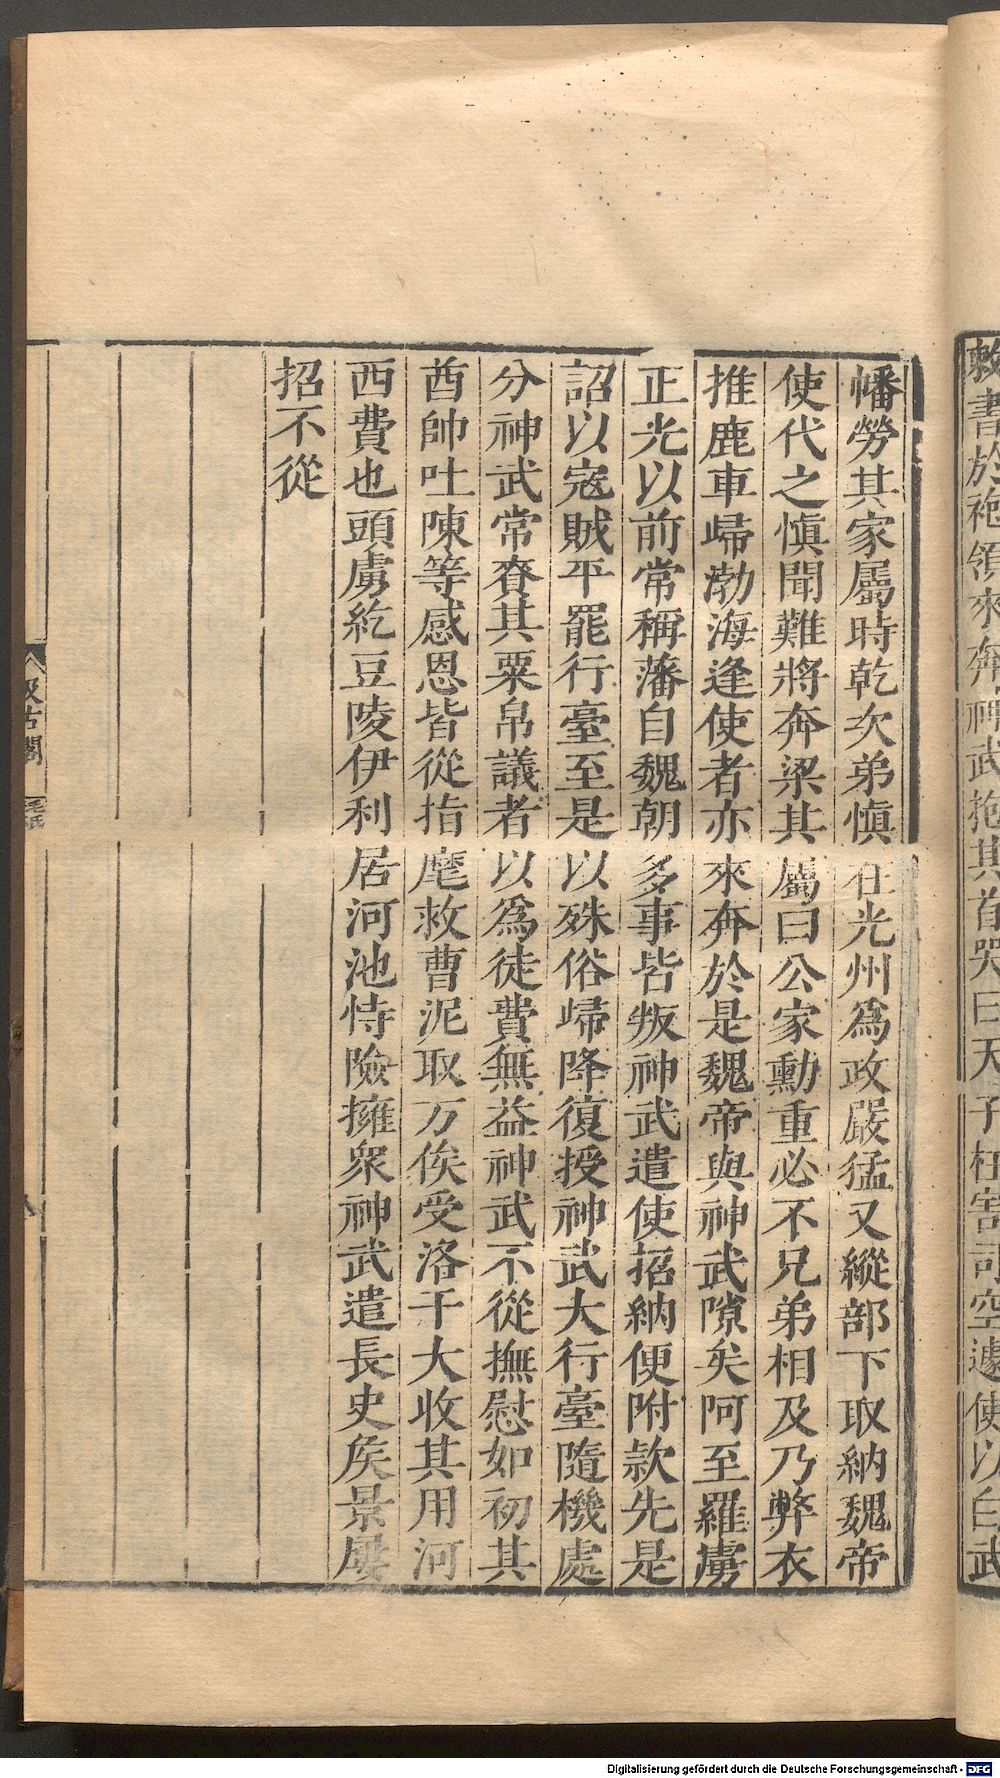 敕書於袍領來奔神武抱其首哭曰天子枉害司空遽使以白武
幡勞其家屬時乾次弟慎在光州爲政嚴猛又縱部下取納魏帝
使代之慎聞難將奔梁其屬曰公家勳重必不兄弟相及乃弊衣
推鹿車歸渤海逢使者亦來奔於是魏帝與神武隙矣阿至羅虜
正光以前常稱藩自魏朝多事皆叛神武遣使招納便附款先是
詔以寇賊平罷行臺至是以殊俗歸降復授神武大行臺隨機處
分神武常賚其粟帛議者以爲徒費無益神武不從撫慰如初其
酋帥吐陳等感恩皆從指麾救曹泥取万俟受洛干大收其用河
西費也頭虜紇豆陵伊利居河池恃險擁衆神武遣長史侯景屢
招不從
汲古閣
毛氏
Digitalisierung gefördert durch die Deutsche Forschungsgemeinschaft - DFG